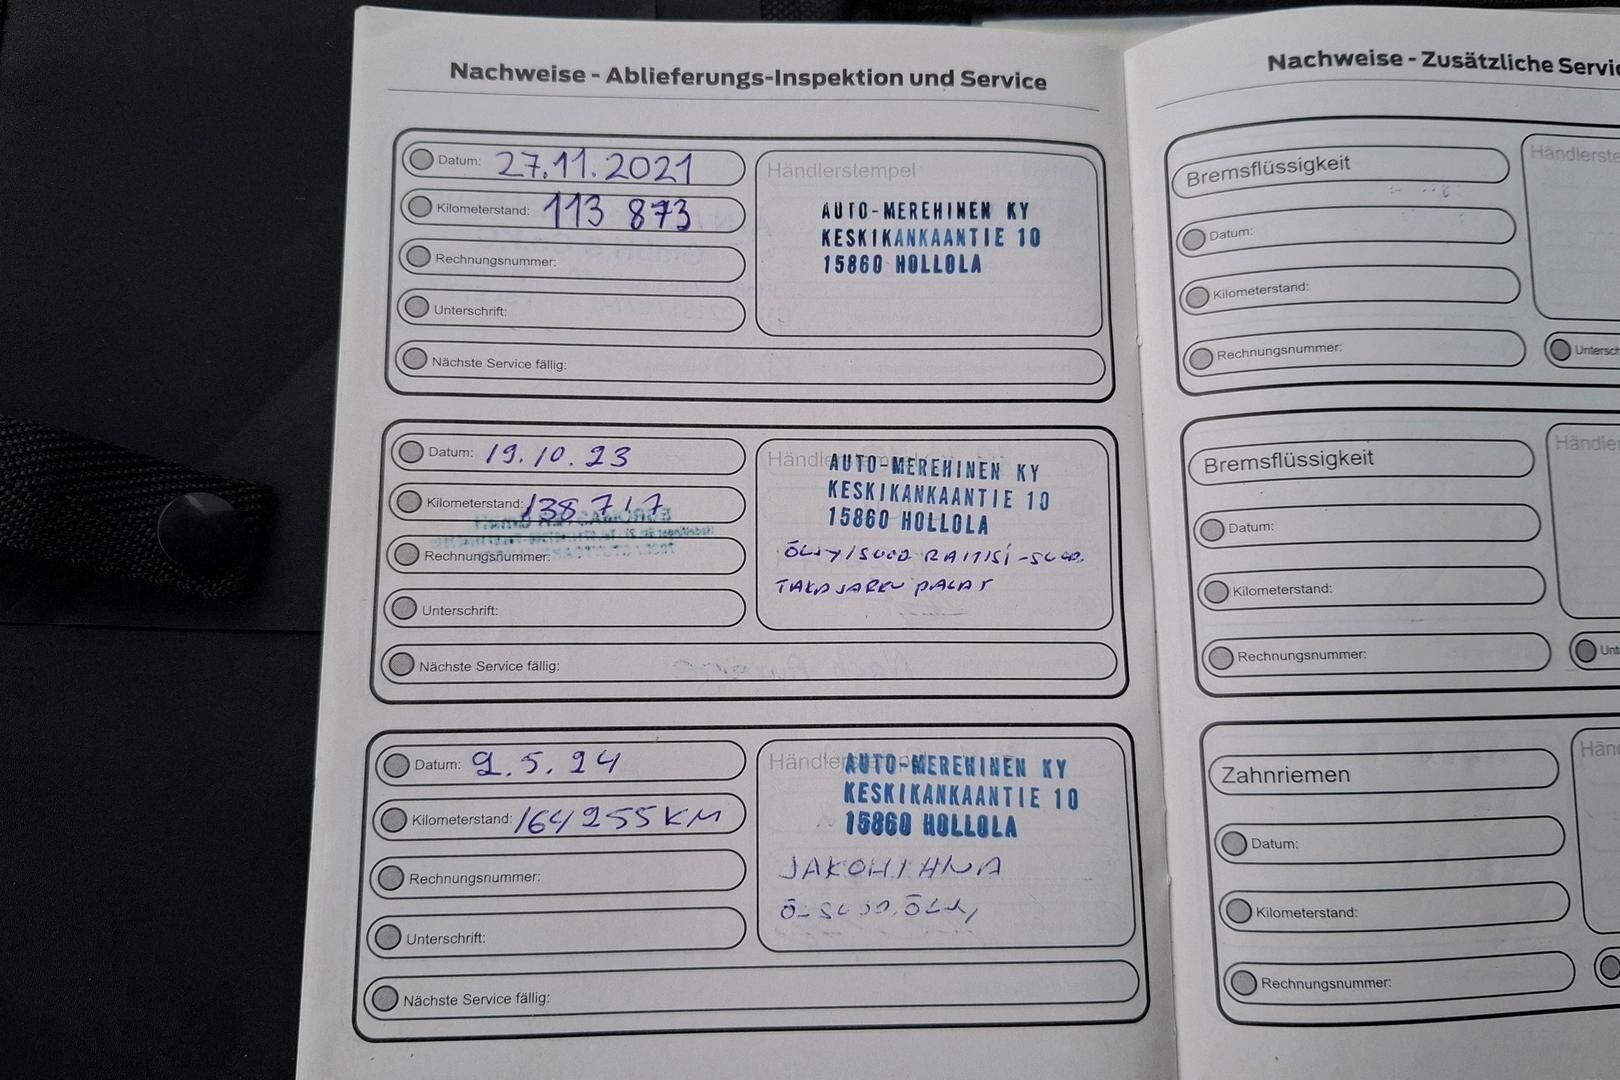 Nachweise - Ablieferungs-Inspektion und Service
Datum: 27.11.2021
Kilometerstand: 113 873
Rechnungsnummer:
Unterschrift:
Nächste Service fällig:
Händlerstempel
AUTO-MEREHINEN KY
KESKIKANKAANTIE 10
15860 HOLLOLA
Datum: 19.10.23
Kilometerstand: 138 717
Rechnungsnummer:
Unterschrift:
Nächste Service fällig:
AUTO-MEREHINEN KY
KESKIKANKAANTIE 10
15860 HOLLOLA
ÖLJY/SUOD RAITISI-SUOD.
TAKAJARRU PALAT
Datum: 2.5.24
Kilometerstand: 164255KM
Rechnungsnummer:
Unterschrift:
Nächste Service fällig:
AUTO-MEREHINEN KY
KESKIKANKAANTIE 10
15860 HOLLOLA
JAKOHIHNA
Ö-SUOD. ÖLJY
Nachweise - Zusätzliche
Bremsflüssigkeit
Datum:
Kilometerstand:
Rechnungsnummer:
Bremsflüssigkeit
Datum:
Kilometerstand:
Rechnungsnummer:
Zahnriemen
Datum:
Kilometerstand:
Rechnungsnummer: